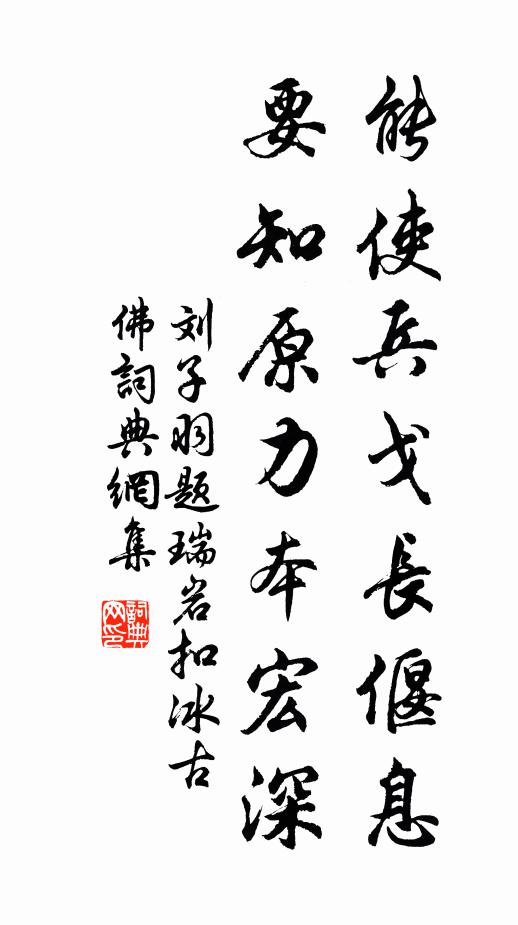 能使兵戈長偃息
要知原力本宏深
刘子羽题瑞岩扣冰古
佛詞典網集
詞典
网印